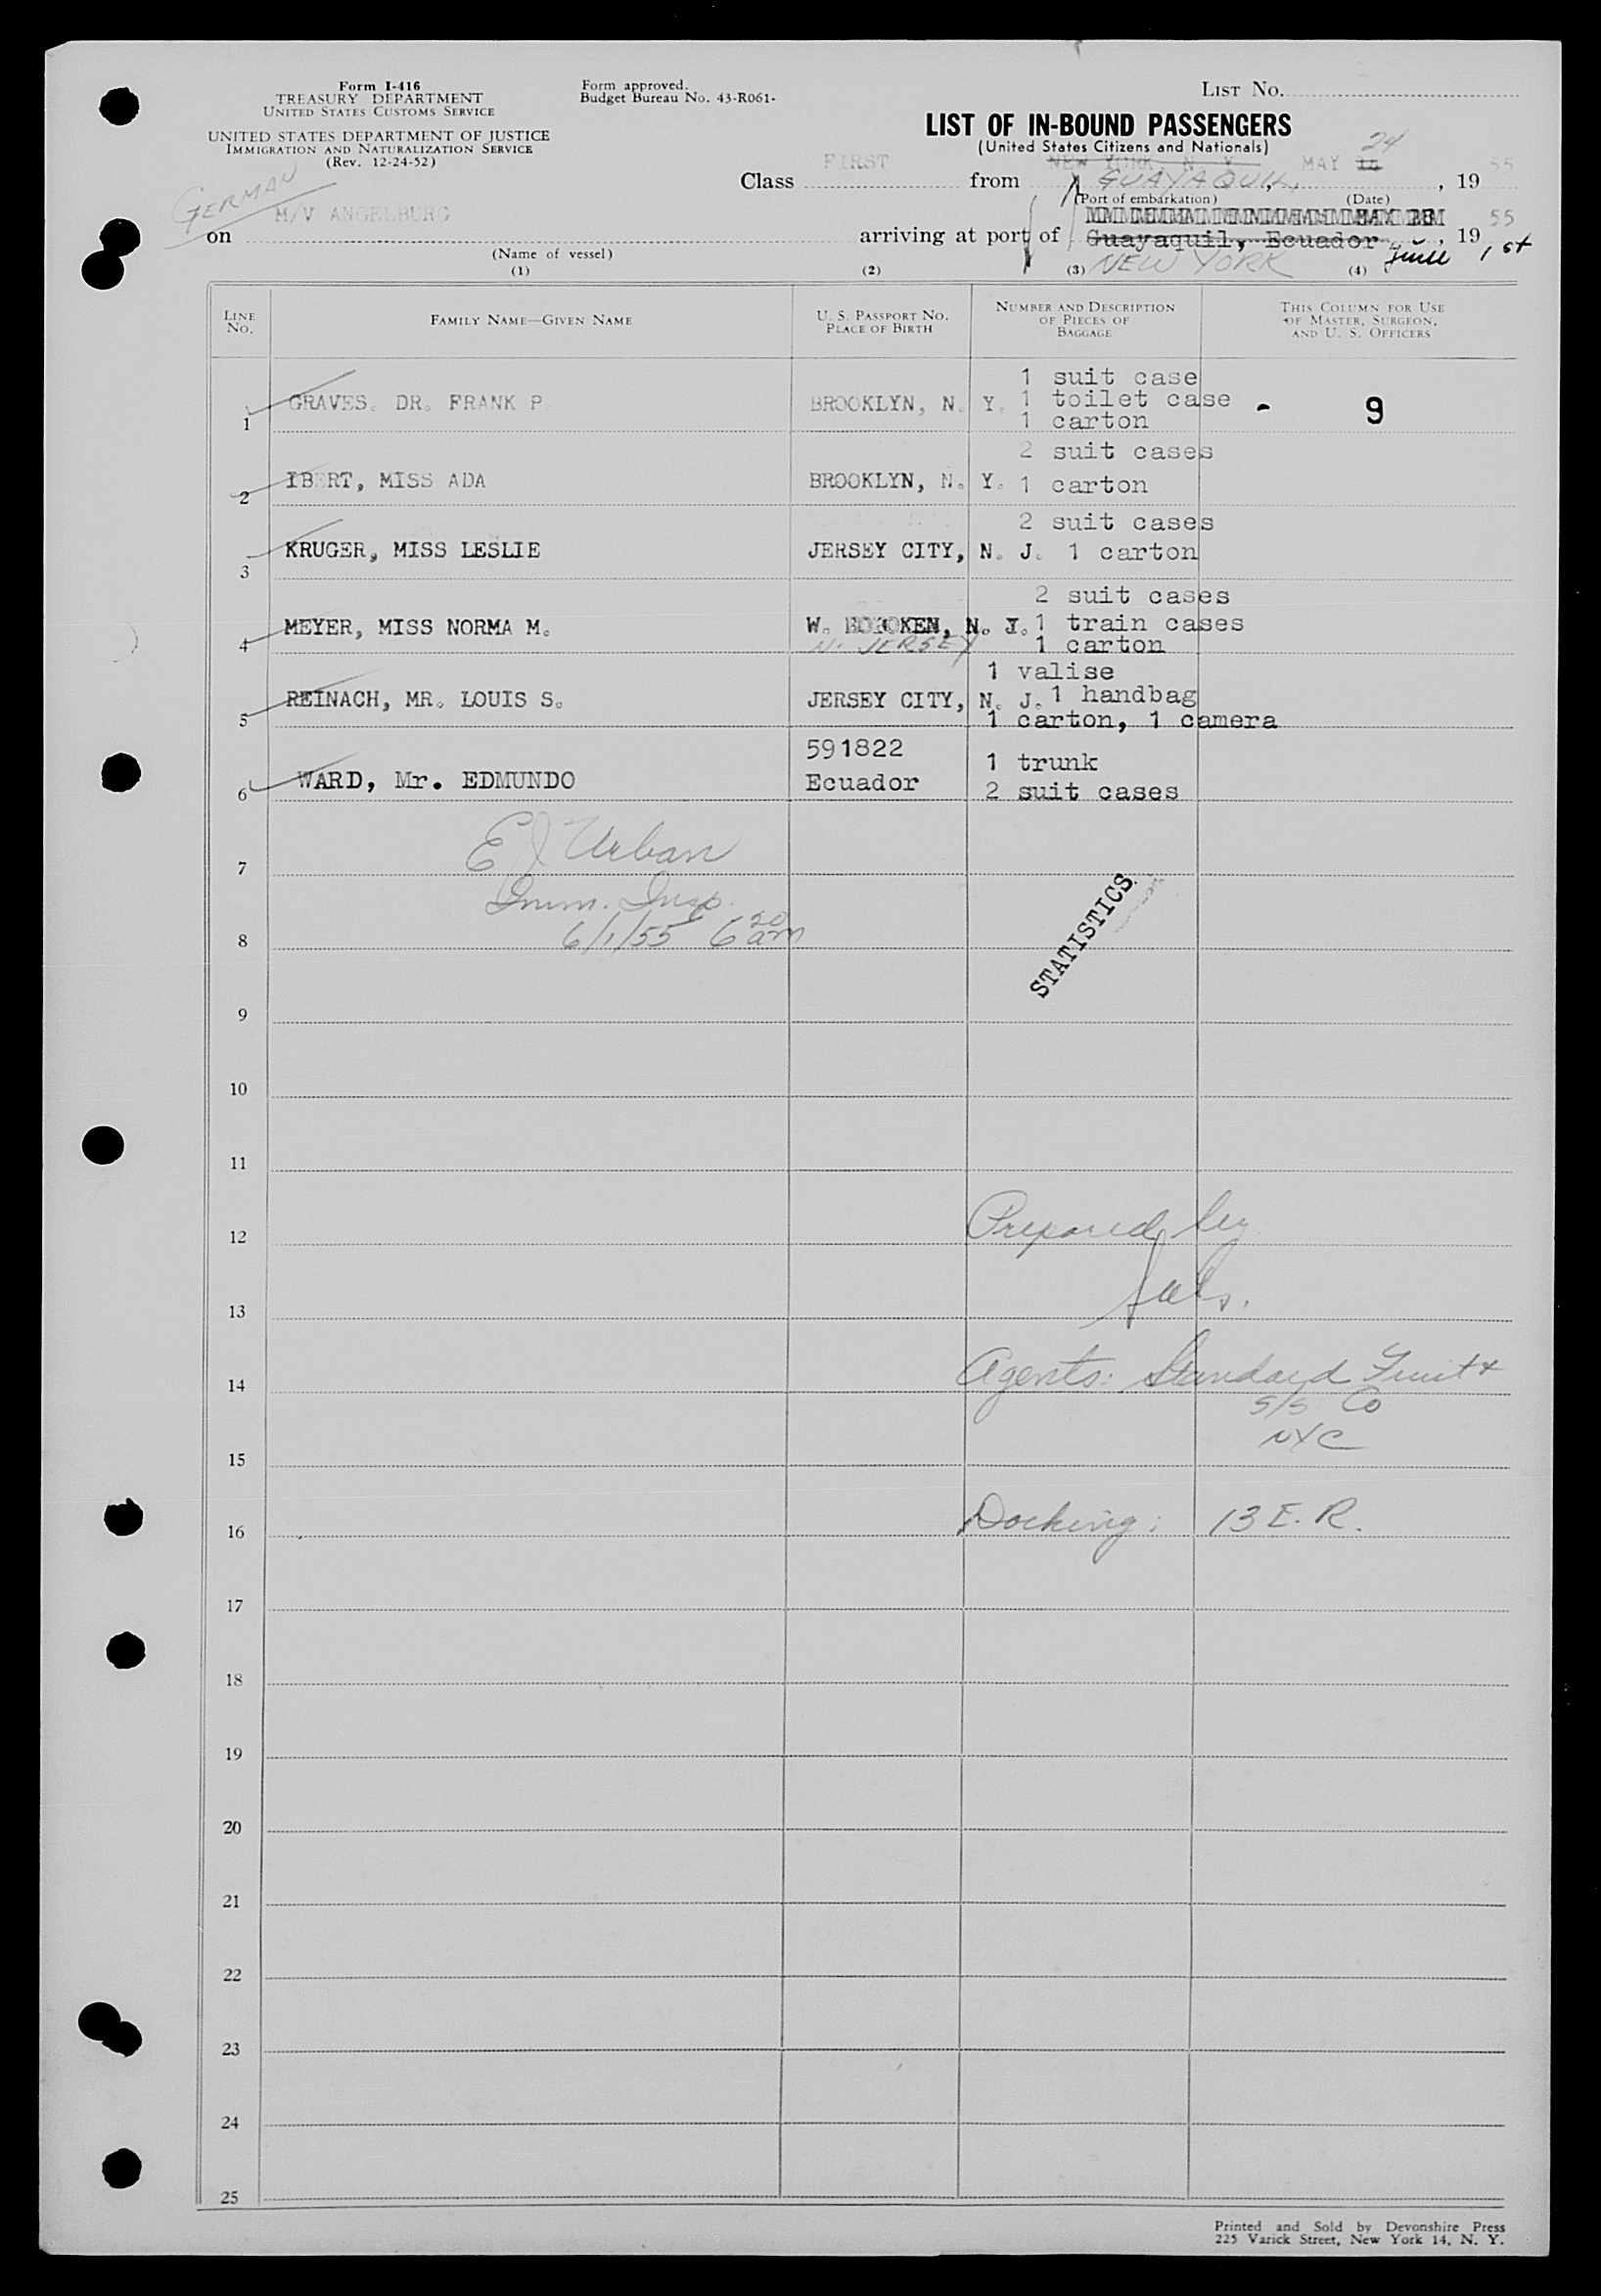 Form I-416
TREASURY DEPARTMENT
UNITED STATES CUSTOMS SERVICE
UNITED STATES DEPARTMENT OF JUSTICE
IMMIGRATION AND NATURALIZATION SERVICE
(Rev. 12-24-52)
Form approved.
Budget Bureau No. 43-R061-
LIST No.
LIST OF IN-BOUND PASSENGERS
(United States Citizens and Nationals)
24
Class FIRST from NEW YORK, N. Y. GUAYAQUIL, MAY , 19 55
(Port of embarkation) (Date)
GERMAN
on M/V ANGELBURG arriving at port of Guayaquil, Ecuador June 1st , 19 55
(Name of vessel) NEW YORK
(1) (2) (3) (4)
LINE No. FAMILY NAME—GIVEN NAME U. S. PASSPORT NO. PLACE OF BIRTH NUMBER AND DESCRIPTION OF PIECES OF BAGGAGE THIS COLUMN FOR USE OF MASTER, SURGEON, AND U. S. OFFICERS
1 suit case
1 GRAVES. DR. FRANK P. BROOKLYN, N. Y. 1 toilet case - 9
1 carton
2 suit cases
2 IBERT, MISS ADA BROOKLYN, N. Y. 1 carton
2 suit cases
3 KRUGER, MISS LESLIE JERSEY CITY, N. J. 1 carton
2 suit cases
4 MEYER, MISS NORMA M. W. HOBOKEN, N. J. 1 train cases
N. JERSEY 1 carton
1 valise
5 REINACH, MR. LOUIS S. JERSEY CITY, N. J. 1 handbag
1 carton, 1 camera
591822
1 trunk
6 WARD, Mr. EDMUNDO Ecuador
2 suit cases
E J Urban
7
Imm. Insp.
8 6/1/55 6 50 am
STATISTICS
9
10
11
12 Prepared by
13
14 Agents: Standard Fruit +
S/S Co
NYC
15
16 Docking: 13 E. R.
17
18
19
20
21
22
23
24
25
Printed and Sold by Devonshire Press
225 Varick Street, New York 14, N. Y.